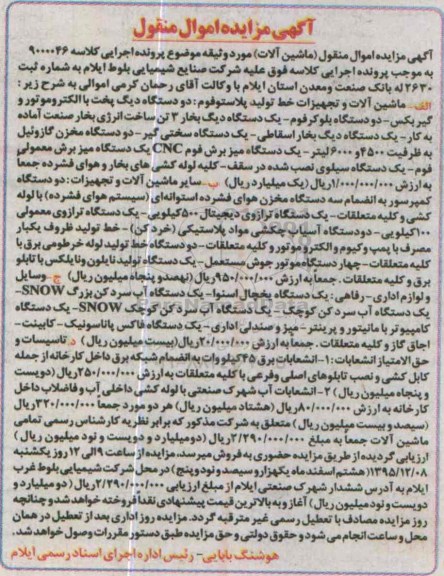 آگهی مزایده اموال منقول
آگهی مزایده اموال منقول (ماشین آلات) مورد وثیقه موضوع پرونده اجرایی کلاسه ۹۰۰۰۰۴۶
به موجب پرونده اجرایی کلاسه فوق علیه شرکت صنایع شیمیایی بلوط ایلام به شماره ثبت
۲۶۳۰ له بانک صنعت و معدن استان ایلام با وکالت آقای رحمان کرمی اموالی به شرح زیر:
الف- ماشین آلات و تجهیزات خط تولید پلاستوفوم: دو دستگاه دیگ پخت با الکتروموتور و
گیربکس- دو دستگاه بلوکر فوم- یک دستگاه دیگ بخار ۳ تن ساخت انرژی بخار صنعت آماده
به کار- یک دستگاه دیگ بخار اسقاطی- یک دستگاه سختی گیر- دو دستگاه مخزن گازوئیل
به ظرفیت ۴۵۰۰ و ۶۰۰۰ لیتر- یک دستگاه میز برش فوم CNC یک دستگاه میز برش معمولی
فوم- یک دستگاه سیلوی نصب شده در سقف- کلیه لوله کشی های بخار و هوای فشرده جمعا
به ارزش ۱/۰۰۰/۰۰۰/۰۰۰ ریال (یک میلیارد ریال) ب- سایر ماشین آلات و تجهیزات: دو دستگاه
کمپرسور به انضمام سه دستگاه مخزن هوای فشرده استوانه ای (سیستم هوای فشرده) با لوله
کشی و کلیه متعلقات- یک دستگاه ترازوی دیجیتال ۵۰۰ کیلویی- یک دستگاه ترازوی معمولی
۱۰۰ کیلویی- دو دستگاه آسیاب چکشی مواد پلاستیکی (خرد کن)- خط تولید ظروف یکبار
مصرف با پمپ وکیوم و الکتروموتور و کلیه متعلقات- دو دستگاه خط تولید لوله خرطومی برق با
کلیه متعلقات- چهار دستگاه موتور جوش مستعمل- یک دستگاه تولید نایلون و نایلکس با تابلو
برق و کلیه متعلقات. جمعا به ارزش ۹۵۰/۰۰۰/۰۰۰ ریال (نهصد و پنجاه میلیون ریال) ج- وسایل
و لوازم اداری- رفاهی: یک دستگاه یخچال اسنوا- یک دستگاه آب سرد کن بزرگ SNOW-
یک دستگاه آب سرد کن کوچک- یک دستگاه آب سرد کن کوچک SNOW- یک دستگاه
کامپیوتر با مانیتور و پرینتر- میز و صندلی اداری- یک دستگاه فاکس پاناسونیک- کابینت-
اجاق گاز و کلیه متعلقات. جمعا به ارزش ۲۰/۰۰۰/۰۰۰ ریال (بیست میلیون ریال) د- تاسیسات و
حق الامتیاز انشعابات: ۱- انشعابات برق ۴۵ کیلو وات به انضمام شبکه برق داخل کارخانه از جمله
کابل کشی و نصب تابلوهای اصلی و فرعی با کلیه متعلقات به ارزش ۲۵۰/۰۰۰/۰۰۰ ریال (دویست
و پنجاه میلیون ریال) ۲- انشعابات آب شهرک صنعتی با لوله کشی داخلی آب و فاضلاب داخل
کارخانه به ارزش ۸۰/۰۰۰/۰۰۰ ریال (هشتاد میلیون ریال) هر دو مورد جمعا ۳۲۰/۰۰۰/۰۰۰ ریال
(سیصد و بیست میلیون ریال) متعلق به شرکت مذکور که برابر نظریه کارشناس رسمی تمامی
ماشین آلات جمعا به مبلغ ۲/۲۹۰/۰۰۰/۰۰۰ ریال (دو میلیارد و دویست و نود میلیون ریال)
ارزیابی گردیده از طریق مزایده حضوری به فروش میرسد، مزایده از ساعت ۹ الی ۱۲ روز یکشنبه
۱۳۹۵/۱۲/۰۸ (هشتم اسفند ماه یکهزار و سیصد و نود و پنج) در محل شرکت شیمیایی بلوط غرب
ایلام به آدرس ششدار شهرک صنعتی ایلام از مبلغ ارزیابی ۲/۲۹۰/۰۰۰/۰۰۰ ریال (دو میلیارد و
دویست و نود میلیون ریال) آغاز و به بالاترین قیمت پیشنهادی نقدا فروخته خواهد شد و چنانچه
روز مزایده مصادف با تعطیل رسمی غیر مترقبه گردد. مزایده روز اداری بعد از تعطیل در همان
محل و ساعت انجام می شود و حقوق دولتی و حق مزایده طبق دستور مقررات وصول خواهد شد.
هوشنگ بابایی- رئیس اداره اجرای اسناد رسمی ایلام